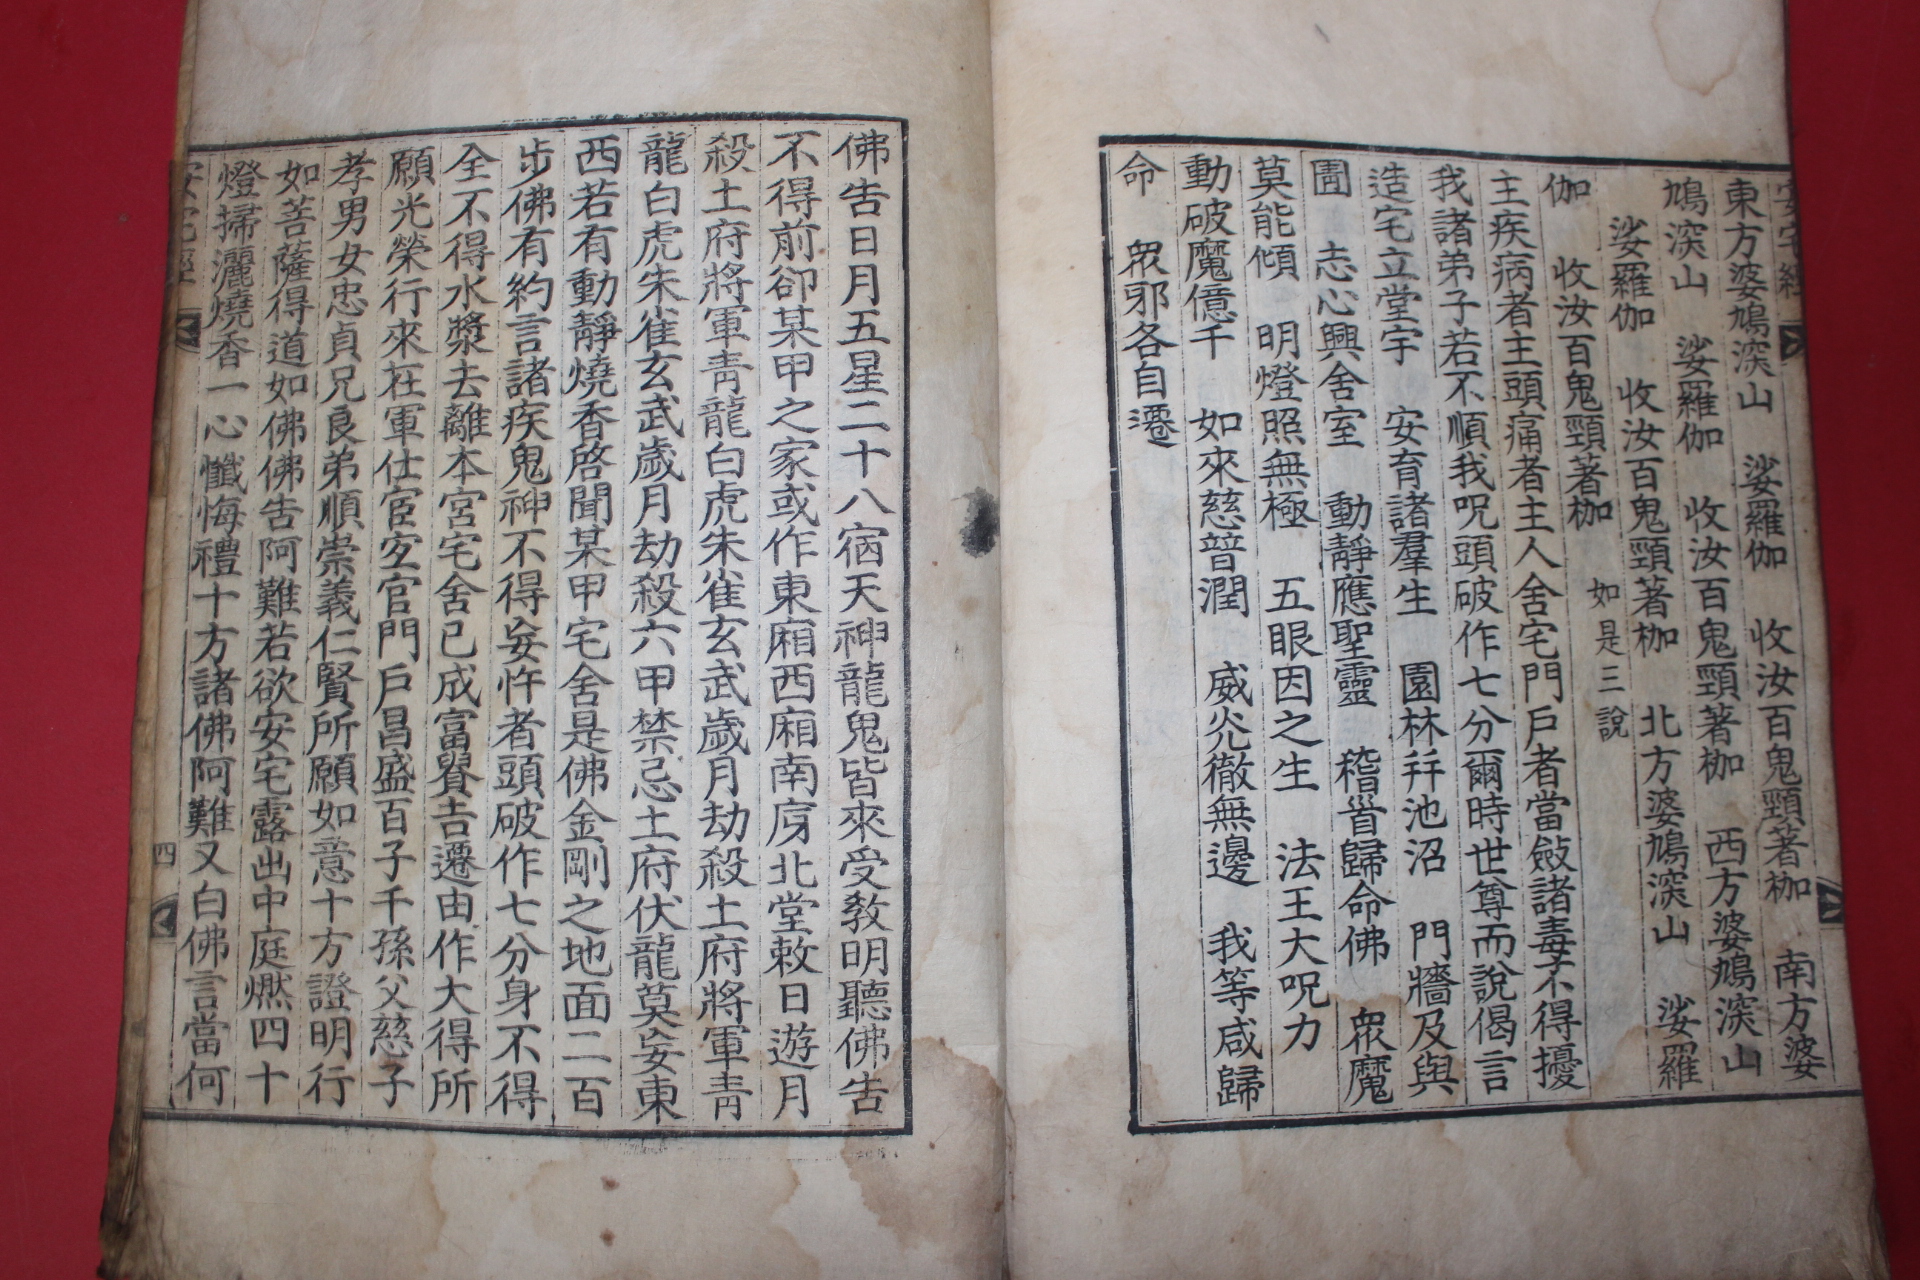 安宅經
東方婆鳩深山 娑羅伽 收汝百鬼頸著枷 南方婆
鳩深山 娑羅伽 收汝百鬼頸著枷 西方婆鳩深山
娑羅伽 收汝百鬼頸著枷 北方婆鳩深山 娑羅
伽 收汝百鬼頸著枷 如是三說
主疾病者主頭痛者主人舍宅門戶者當斂諸毒不得擾
我諸弟子若不順我呪頭破作七分爾時世尊而說偈言
造宅立堂宇 安育諸羣生 園林幷池沼 門牆及與
圊 志心興舍室 動靜應聖靈 稽首歸命佛 眾魔
莫能傾 明燈照無極 五眼因之生 法王大呪力
動破魔億千 如來慈普潤 威光徹無邊 我等咸歸
命 眾邪各自遷
佛告日月五星二十八宿天神龍鬼皆來受敎明聽佛告
不得前卻某甲之家或作東廂西廂南庌北堂敕日遊月
殺土府將軍靑龍白虎朱雀玄武歲月劫殺土府將軍靑
龍白虎朱雀玄武歲月劫殺六甲禁忌土府伏龍莫妄東
西若有動靜燒香啓聞某甲宅舍是佛金剛之地面二百
步佛有約言諸疾鬼神不得妄忤者頭破作七分身不得
全不得水漿去離本宮宅舍已成富貴吉遷由作大得所
願光榮行來在軍仕宦宜官門戶昌盛百子千孫父慈子
孝男女忠貞兄良弟順崇義仁賢所願如意十方證明行
如菩薩得道如佛佛告阿難若欲安宅露出中庭燃四十
燈掃灑燒香一心懺悔禮十方諸佛阿難又白佛言當何
安宅經
四